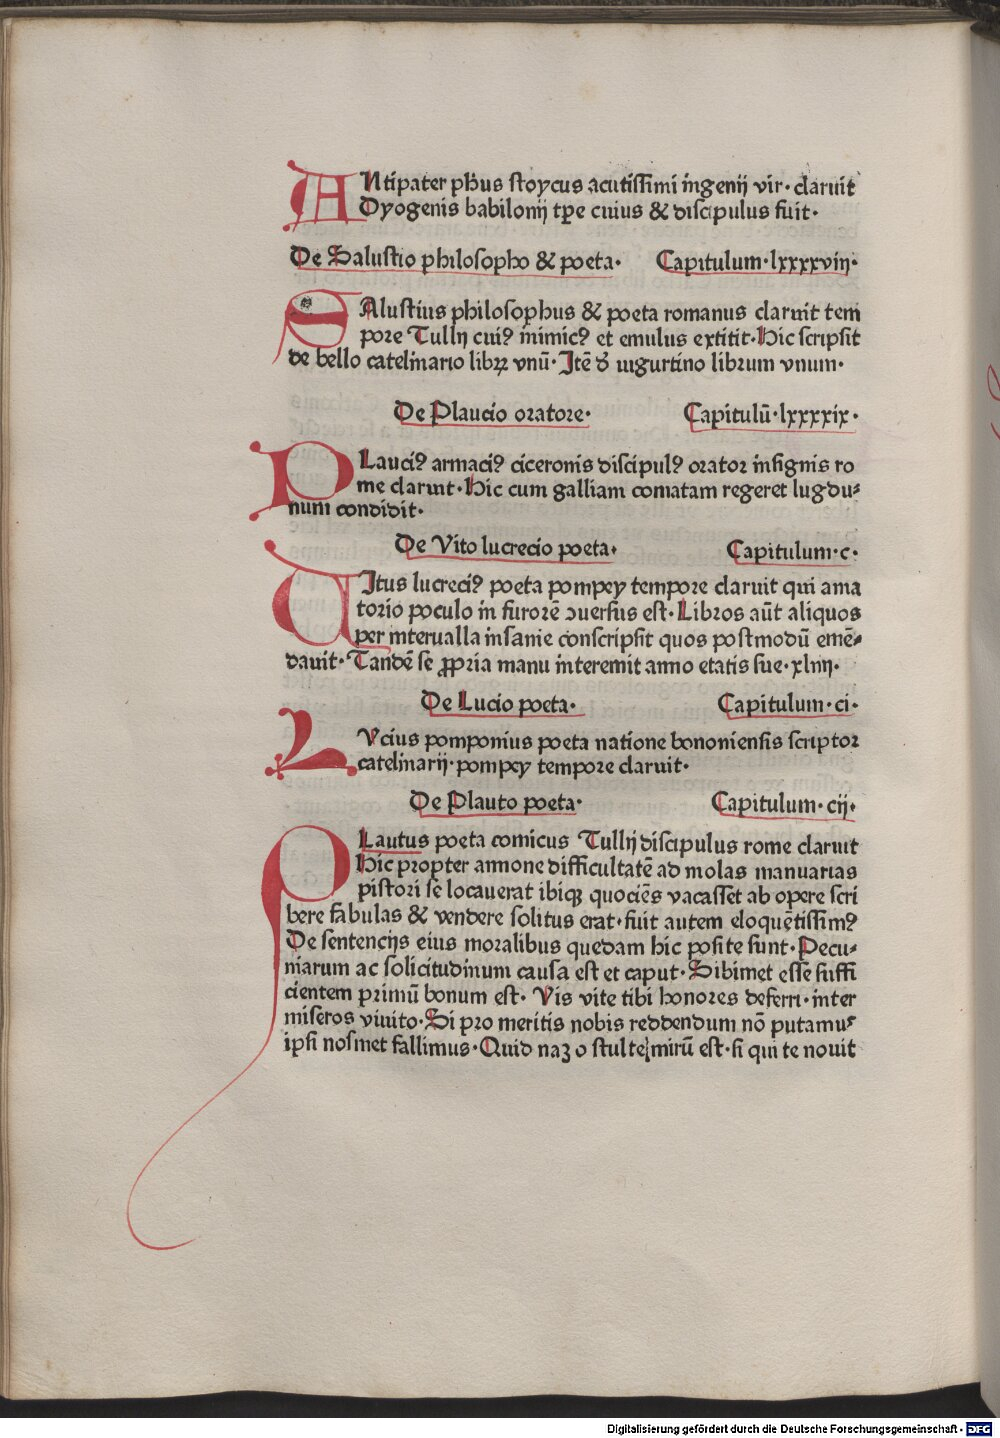 ANtipater ph̄us stoycus acutissimi ingenij vir· claruit
Dyogenis babilonij tꝑe cuius & discipulus fuit·
De Salustio philosopho & poeta· Capitulum·lxxxxviij·
SAlustius philosophus & poeta romanus claruit tem
pore Tullij cuiꝰ inimicꝰ et emulus extitit·Hic scripsit
de bello catelinario librꝝ vnū· Itē d̄ iugurtino librum vnum·
De Plaucio oratore· Capitulū·lxxxxix·
PLauciꝰ armaciꝰ ciceronis discipulꝰ orator insignis ro
me claruit·Hic cum galliam comatam regeret lugdu⸗
num condidit·
De Vito lucrecio poeta· Capitulum·c·
TItus lucreciꝰ poeta pompey tempore claruit qui ama
torio poculo in furorē ꝯuersus est·Libros aūt aliquos
per interualla insanie conscripsit quos postmodū emē⸗
dauit·Tandē se ꝓpria manu interemit anno etatis sue·xliiij·
De Lucio poeta· Capitulum·ci·
LVcius pomponius poeta natione bononiensis scriptor
catelinarij·pompey tempore claruit·
De Plauto poeta· Capitulum·cij·
PLautus poeta comicus Tullij discipulus rome claruit
Hic propter annone difficultatē ad molas manuarias
pistori se locauerat ibiqꝫ quociēs vacasset ab opere scri
bere fabulas & vendere solitus erat·fuit autem eloquētissimꝰ
De sentencijs eius moralibus quedam hic posite sunt·Pecu⸗
niarum ac solicitudinum causa est et caput·Sibimet esse suffi
cientem primū bonum est· Vis vite tibi honores deferri·inter
miseros viuito·Si pro meritis nobis reddendum nō putamuꝰ
ipsi nosmet fallimus·Quid naꝫ o stulte mirū est·si qui te nouit
Digitalisierung gefördert durch die Deutsche Forschungsgemeinschaft - DFG